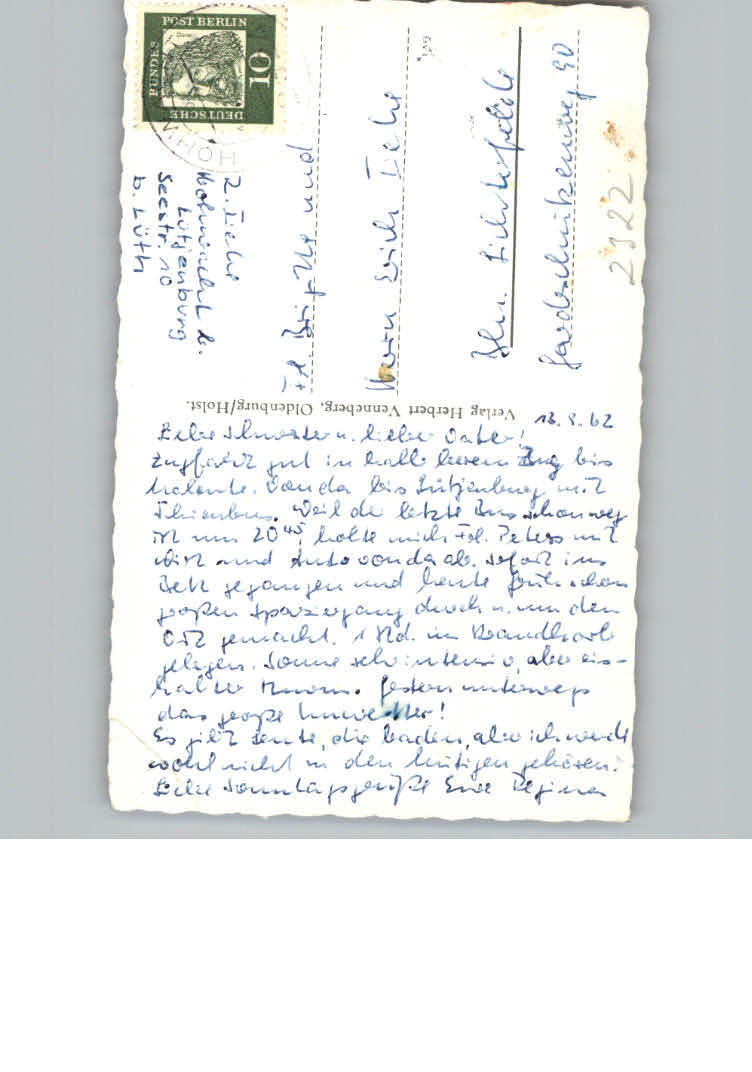 DEUTSCHE
BUNDES
POST BERLIN
10
Dürer
HOHW
R. Tiehe
Hohwacht b.
Lütjenburg
Seestr. 10
b. Lüth
Frl. Brigitte und
Herrn Erich Tiehe
Bln. Lichterfelde
Gardeschützenweg 90
2322
Verlag Herbert Venneberg, Oldenburg/Holst.
13. 8. 62
Liebe Schwester u. lieber Vater!
Zugfahrt gut in halb leerem Zug bis
Malente. Von da bis Lütjenburg mit
Schienbus. Weil der letzte Bus schon weg
ist um 20 45, holte mich Frl. Peters mit
Wirt und Auto von da ab. Sofort ins
Bett gegangen und heute früh schon
großen Spaziergang durch u. um den
Ort gemacht. 1 Std. im Strandkorb
gelegen. Sonne sehr intensiv, aber eis-
kalter Sturm. Gestern unterwegs
das große Unwetter!
Es gibt Leute, die baden, aber ich werde
wohl nicht zu den hiesigen gehören.
Liebe Sonntagsgrüße Eure Regina